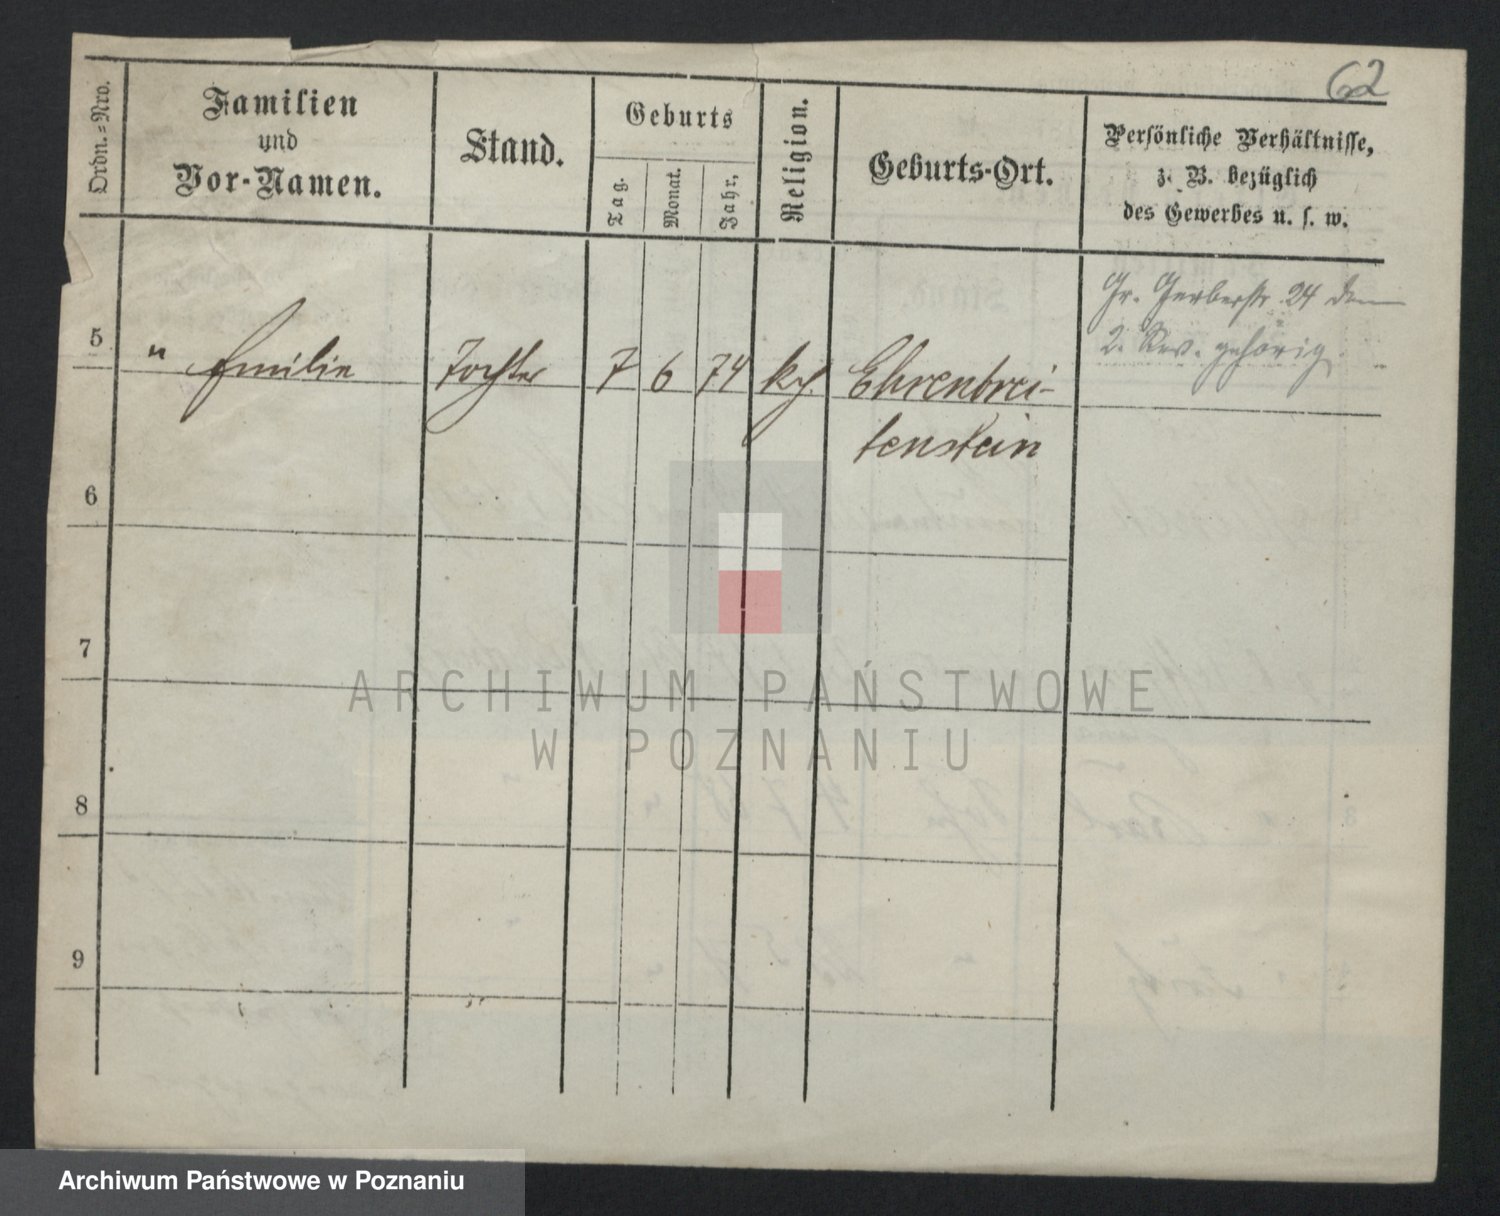 62
Ordn.=Nro.
Familien
und
Vor-Namen.
Stand.
Geburts
Tag.
Monat.
Jahr.
Religion.
Geburts-Ort.
Persönliche Verhältnisse,
z. B. bezüglich
des Gewerbes u. s. w.
Gr. Gerberstr. 24 dem
2. Rev. gehörig.
5 " Emilie Tochter 7 6 74 kath. Ehrenbrei-
tenstein
6
7
8
9
ARCHIWUM PAŃSTWOWE
W POZNANIU
Archiwum Państwowe w Poznaniu